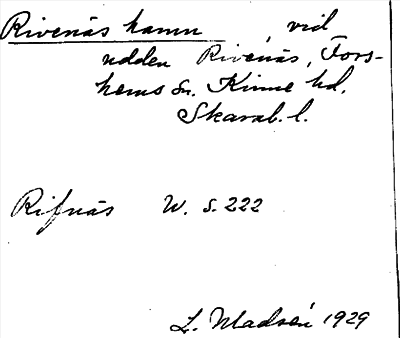 Rivenäs hamn, vid
udden Rivenäs, Fors-
hems sn. Kinne hd.
Skarab. l.
Rifnäs W. S. 222
L. Madsén 1929